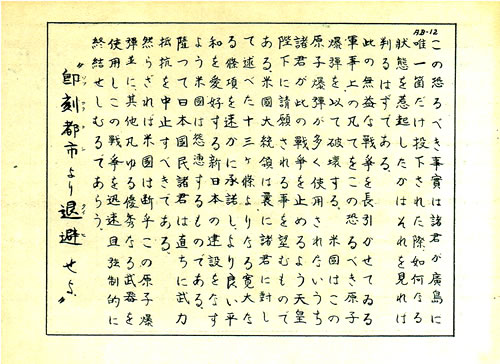 AB-12
この恐るべき事實は諸君が廣島に
唯一箇だけ投下された際如何なる
狀態を惹起したかはそれを見れば
判るはずである。
此の無益な戰爭を長引かせてゐる
軍事上の凡てをこの恐るべき原子
爆彈を以て破壞する。米國はこの
原子爆彈が多く使用されないうち
諸君が此の戰爭を止めるよう天皇
陛下に請願される事を望むもので
ある米國大統領は曩に諸君に對し
て述べた十三ヶ條よりなる寬大な
る條項を速かに承諾しより良い平
和を愛好する新日本の建設をなす
よう米國は慫慂するものである。
隨つて日本國民諸君は直ちに武力
抵抗を中止すべきである。
然らざれば米國は斷乎この原子爆
彈並に其他凡ゆる優秀なる武器を
使用しこの戰爭を迅速且强制的に
終結せしむるであらう。
“卽刻都市より退避せよ”